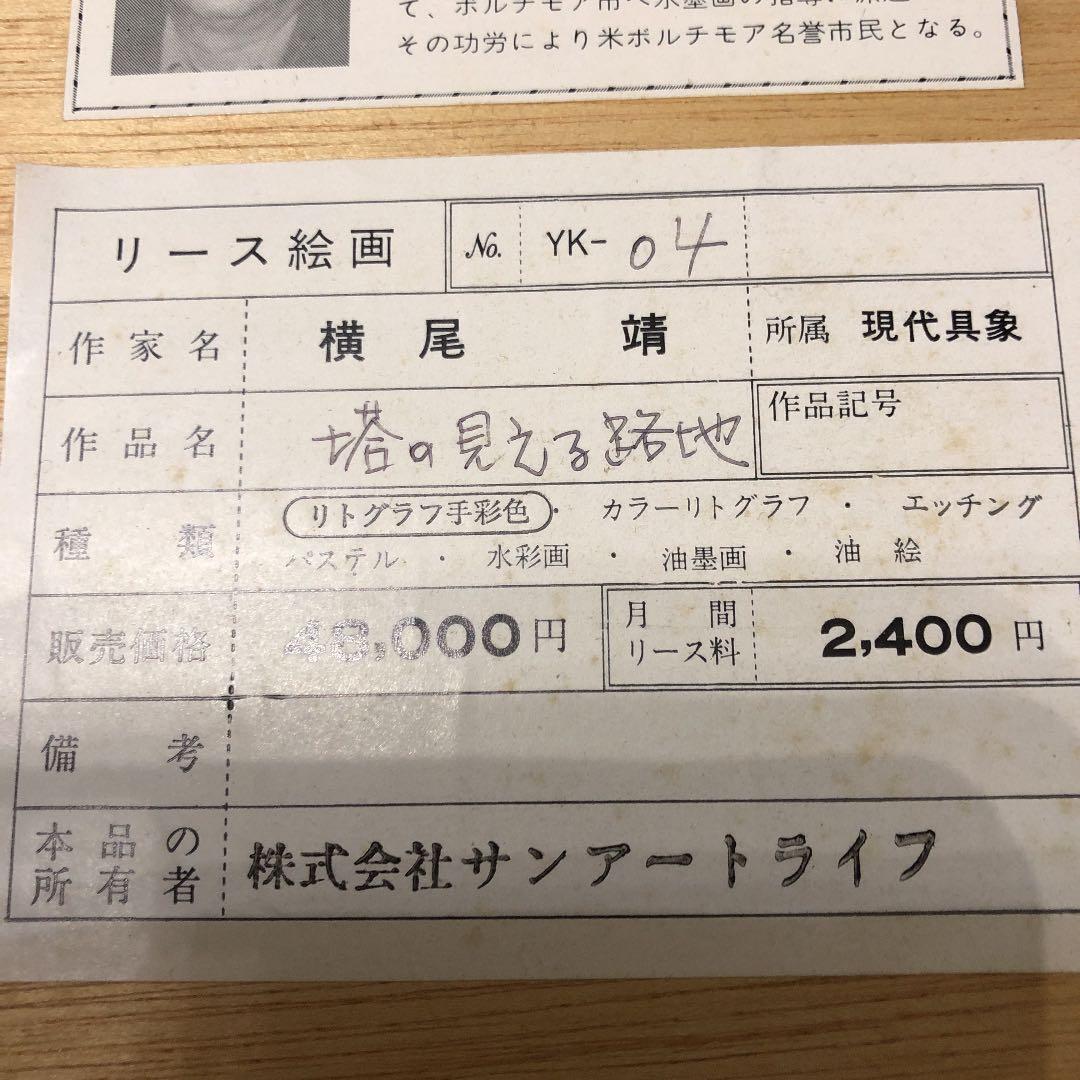 て、ボルチモア市へ水墨画の指導に派遣
その功労により米ボルチモア名誉市民となる。
リース絵画 No. YK- 04
作家名 横尾 靖 所属 現代具象
作品名 塔の見える路地 作品記号
種類 リトグラフ手彩色・カラーリトグラフ・エッチング
パステル・水彩画・油墨画・油絵
販売価格 48,000円 月間リース料 2,400円
備考
本品の所有者 株式会社サンアートライフ